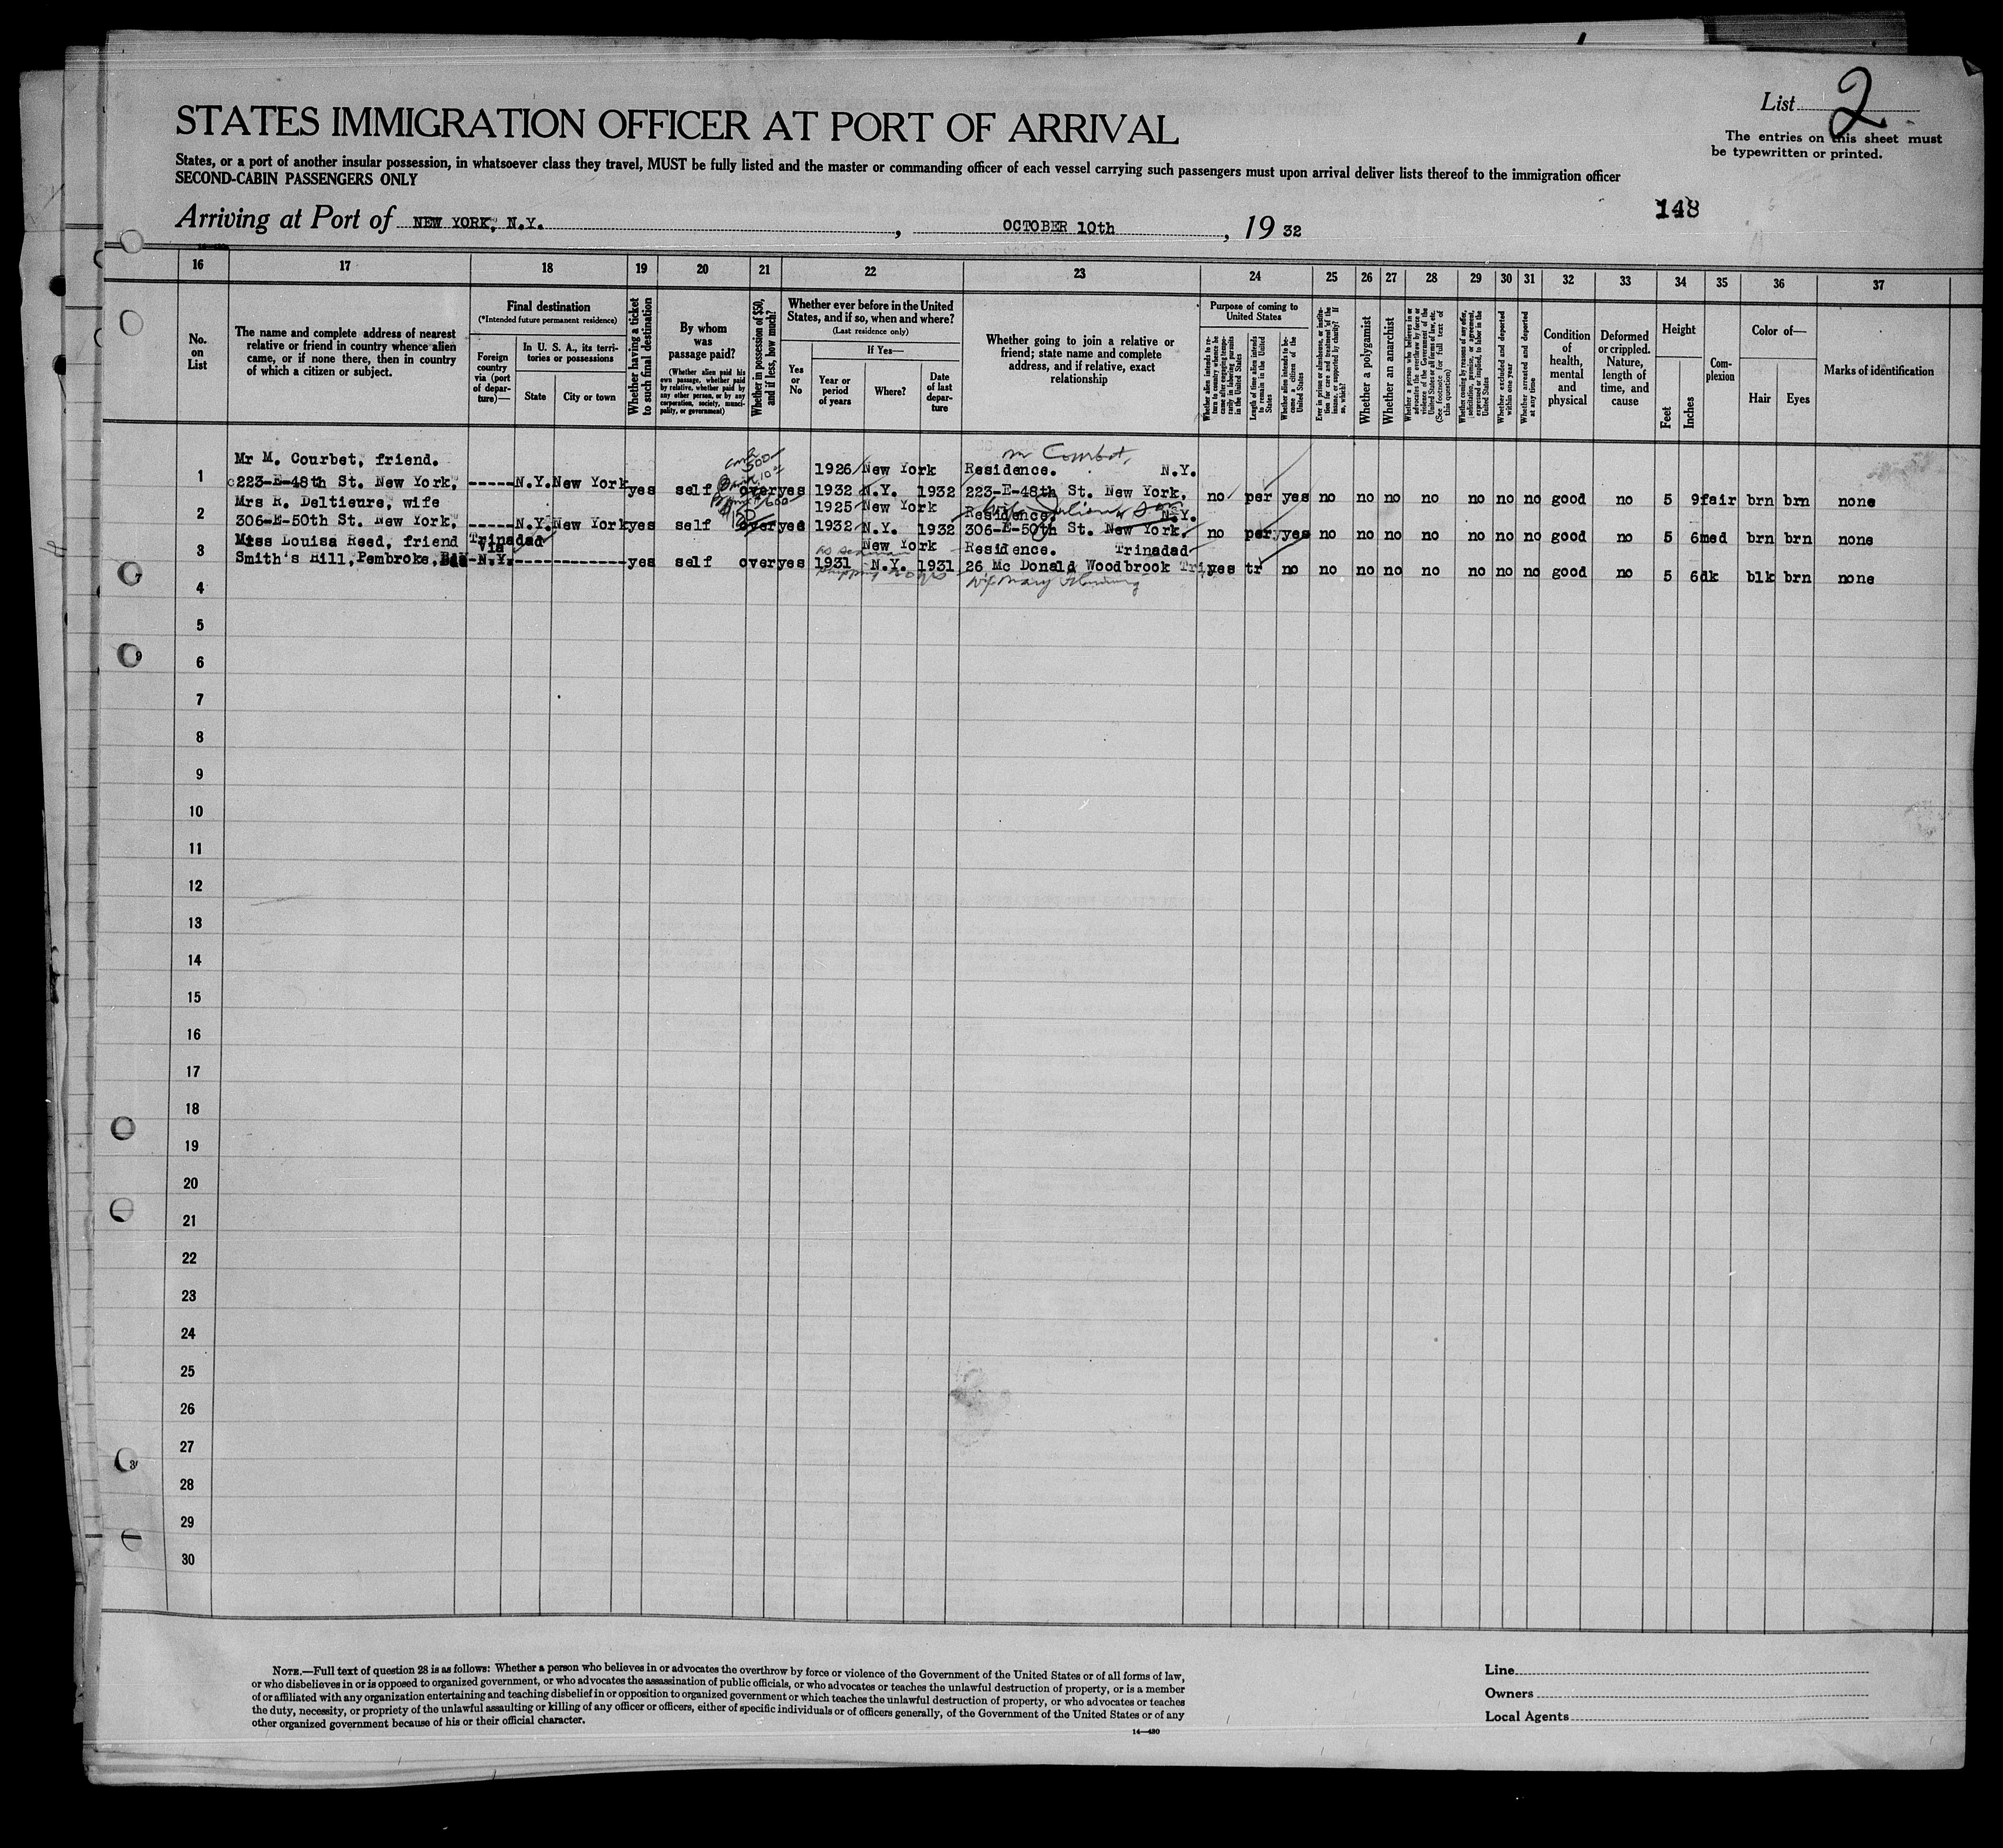 List 2
The entries on this sheet must
be typewritten or printed.
STATES IMMIGRATION OFFICER AT PORT OF ARRIVAL
States, or a port of another insular possession, in whatsoever class they travel, MUST be fully listed and the master or commanding officer of each vessel carrying such passengers must upon arrival deliver lists thereof to the immigration officer
SECOND-CABIN PASSENGERS ONLY
148
Arriving at Port of NEW YORK, N.Y. , OCTOBER 10th , 19 32
16 17 18 19 20 21 22 23 24 25 26 27 28 29 30 31 32 33 34 35 36 37
No.
on
List
The name and complete address of nearest
relative or friend in country whence alien
came, or if none there, then in country
of which a citizen or subject.
Final destination
(*Intended future permanent residence)
Foreign
country
via (port
of depar-
ture)—
In U. S. A., its terri-
tories or possessions
State
City or town
Whether having a ticket
to such final destination
By whom
was
passage paid?
(Whether alien paid his
own passage, whether paid
by relative, whether paid by
any other person, or by any
corporation, society, munici-
pality, or government)
Whether in possession of $50,
and if less, how much?
Whether ever before in the United
States, and if so, when and where?
(Last residence only)
Yes
or
No
If Yes—
Year or
period
of years
Where?
Date
of last
depar-
ture
Whether going to join a relative or
friend; state name and complete
address, and if relative, exact
relationship
Purpose of coming to
United States
Whether alien intends to re-
turn to country whence he
came after engaging tempo-
rarily in laboring pursuits
in the United States
Length of time alien intends
to remain in the United
States
Whether alien intends to be-
come a citizen of the
United States
Ever in prison or almshouse, or institu-
tion for care and treatment of the
insane, or supported by charity? If
so, which?
Whether a polygamist
Whether an anarchist
Whether a person who believes in or
advocates the overthrow by force or
violence of the Government of the
United States or all forms of law, etc.
(See footnote for full text of
this question)
Whether coming by reasons of any offer,
solicitation, promise, or agreement,
expressed or implied, to labor in the
United States
Whether excluded and deported
within one year
Whether arrested and deported
at any time
Condition
of
health,
mental
and
physical
Deformed
or crippled.
Nature,
length of
time, and
cause
Height
Feet
Inches
Com-
plexion
Color of—
Hair
Eyes
Marks of identification
Mr M. Courbet, friend. 1926 New York Residence. N.Y.
1 223-E-48th St. New York, -----N.Y.New York yes self over yes 1932 N.Y. 1932 223-E-48th St. New York. no per yes no no no no no no no good no 5 9 fair brn brn none
Mrs R. Deltieure, wife 1925 New York Residence. N.Y.
2 306-E-50th St. New York, -----N.Y.New York yes self over yes 1932 N.Y. 1932 306-E-50th St. New York. no per yes no no no no no no no good no 5 6 med brn brn none
Miss Louisa Reed, friend Trinadad via New York Residence. Trinadad
3 Smith's Hill, Pembroke, -N.Y.------------- yes self over yes 1931 N.Y. 1931 26 Mc Donald Woodbrook Tri yes tr no no no no no no no no good no 5 6 dk blk brn none
4
5
6
7
8
9
10
11
12
13
14
15
16
17
18
19
20
21
22
23
24
25
26
27
28
29
30
NOTE.—Full text of question 28 is as follows: Whether a person who believes in or advocates the overthrow by force or violence of the Government of the United States or of all forms of law,
or who disbelieves in or is opposed to organized government, or who advocates the assassination of public officials, or who advocates or teaches the unlawful destruction of property, or is a member
of or affiliated with any organization entertaining and teaching disbelief in or opposition to organized government or which teaches the unlawful destruction of property, or who advocates or teaches
the duty, necessity, or propriety of the unlawful assaulting or killing of any officer or officers, either of specific individuals or of officers generally, of the Government of the United States or of any
other organized government because of his or their official character.
14—430
Line
Owners
Local Agents